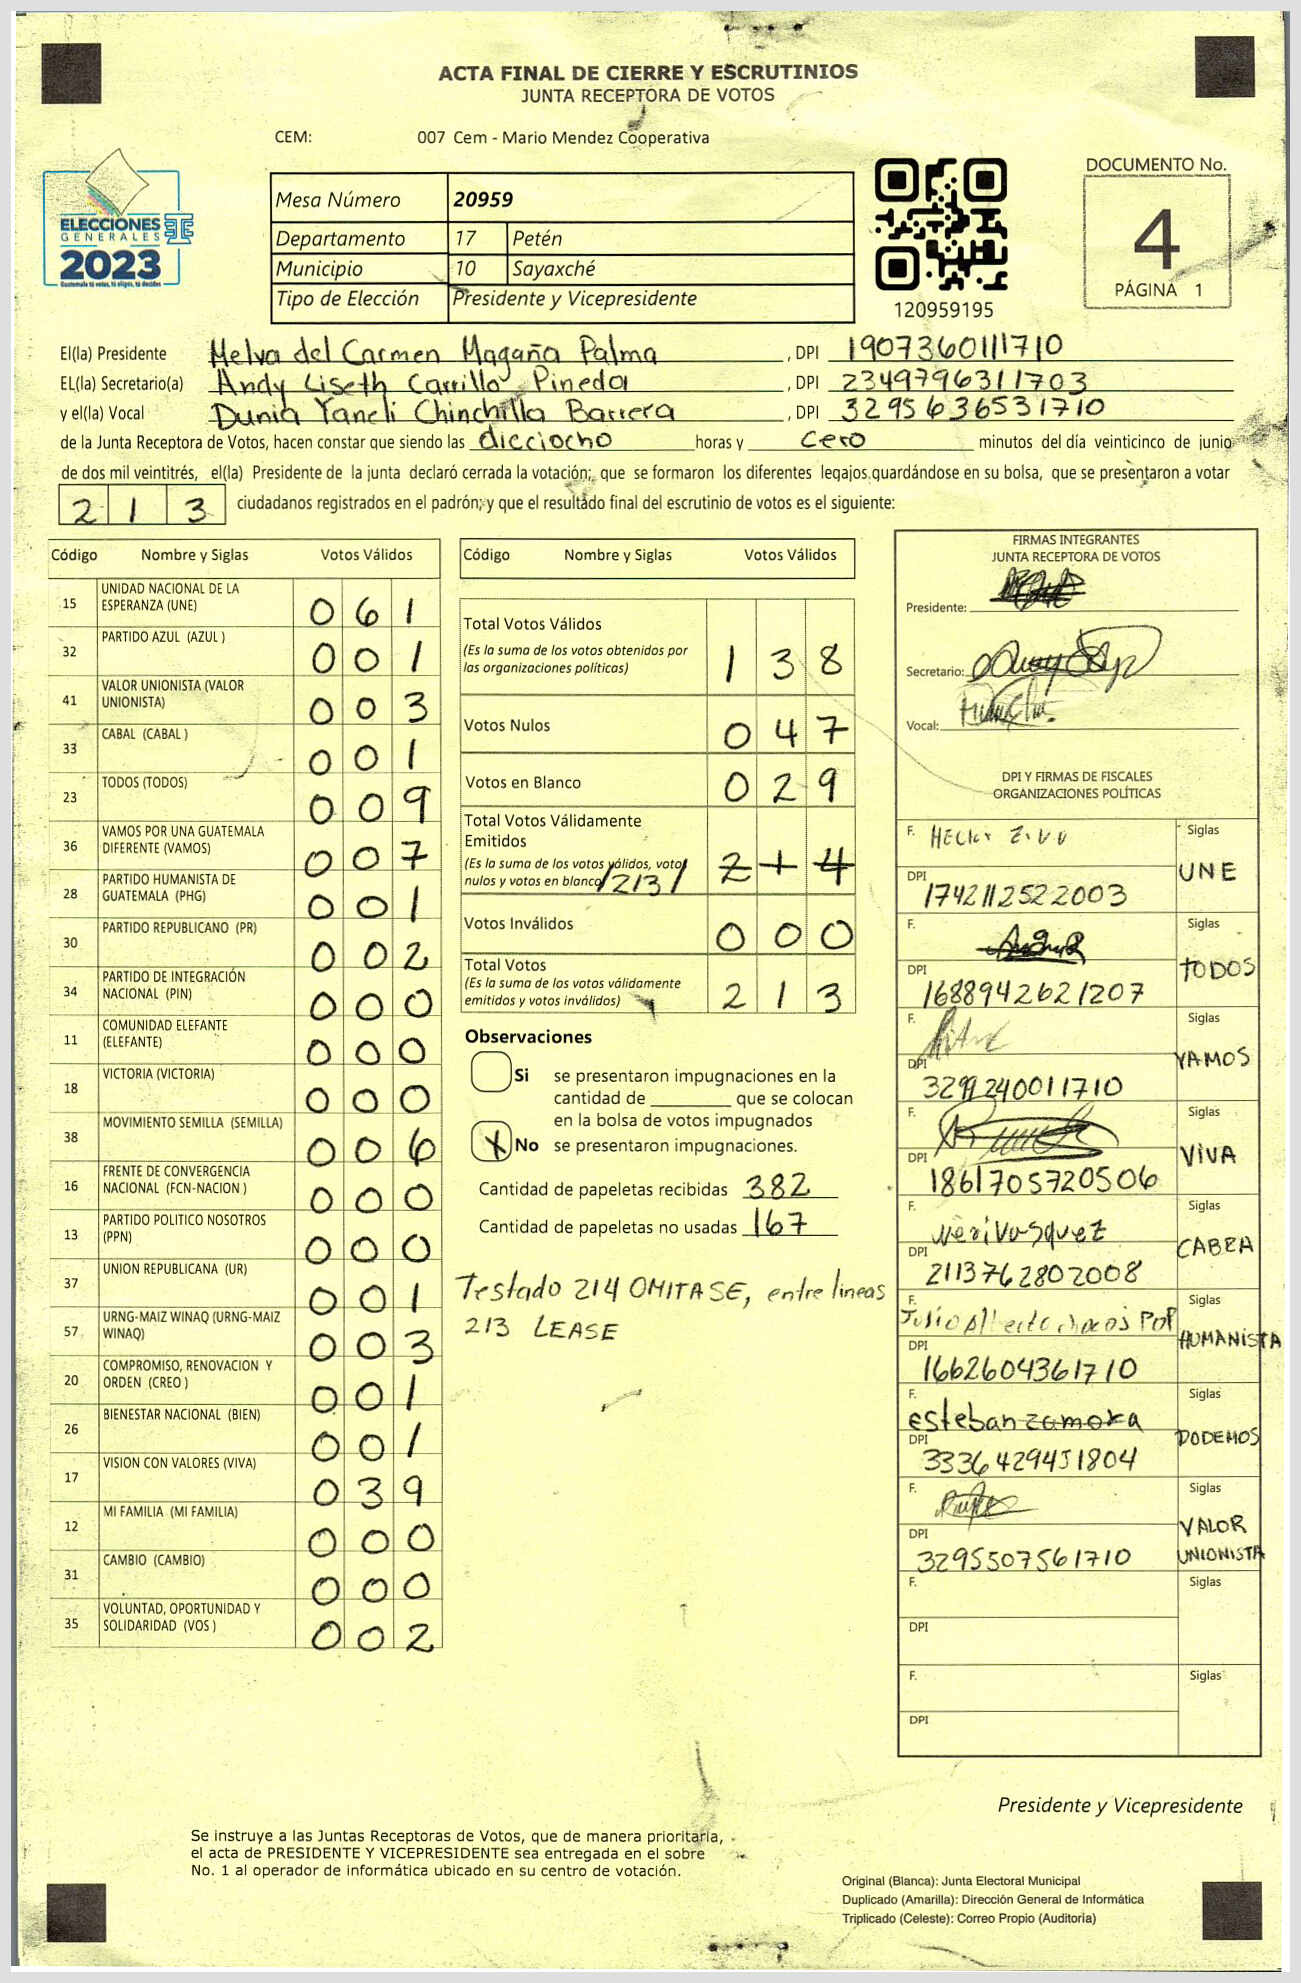 ACTA FINAL DE CIERRE Y ESCRUTINIOS
JUNTA RECEPTORA DE VOTOS
CEM: 007 Cem - Mario Mendez Cooperativa
ELECCIONES
GENERALES
2023
Guatemala tú votas, tú eliges, tú decides
Mesa Número 20959
Departamento 17 Petén
Municipio 10 Sayaxché
Tipo de Elección Presidente y Vicepresidente
120959195
DOCUMENTO No.
4
PÁGINA 1
El(la) Presidente Melva del Carmen Magaña Palma, DPI 1907360111710
EL(la) Secretario(a) Andy Liseth Carrillo Pineda, DPI 2349796311703
y el(la) Vocal Dunia Yaneli Chinchilla Barrera, DPI 3295636531710
de la Junta Receptora de Votos, hacen constar que siendo las dicciocho horas y cero minutos del día veinticinco de junio
de dos mil veintitrés, el(la) Presidente de la junta declaró cerrada la votación; que se formaron los diferentes legajos guardándose en su bolsa, que se presentaron a votar
213 ciudadanos registrados en el padrón; y que el resultado final del escrutinio de votos es el siguiente:
Código Nombre y Siglas Votos Válidos
15 UNIDAD NACIONAL DE LA ESPERANZA (UNE) 061
32 PARTIDO AZUL (AZUL ) 001
41 VALOR UNIONISTA (VALOR UNIONISTA) 003
33 CABAL (CABAL ) 001
23 TODOS (TODOS) 009
36 VAMOS POR UNA GUATEMALA DIFERENTE (VAMOS) 007
28 PARTIDO HUMANISTA DE GUATEMALA (PHG) 001
30 PARTIDO REPUBLICANO (PR) 002
34 PARTIDO DE INTEGRACIÓN NACIONAL (PIN) 000
11 COMUNIDAD ELEFANTE (ELEFANTE) 000
18 VICTORIA (VICTORIA) 000
38 MOVIMIENTO SEMILLA (SEMILLA) 006
16 FRENTE DE CONVERGENCIA NACIONAL (FCN-NACION ) 000
13 PARTIDO POLITICO NOSOTROS (PPN) 000
37 UNION REPUBLICANA (UR) 001
57 URNG-MAIZ WINAQ (URNG-MAIZ WINAQ) 003
20 COMPROMISO, RENOVACION Y ORDEN (CREO ) 001
26 BIENESTAR NACIONAL (BIEN) 001
17 VISION CON VALORES (VIVA) 039
12 MI FAMILIA (MI FAMILIA) 000
31 CAMBIO (CAMBIO) 000
35 VOLUNTAD, OPORTUNIDAD Y SOLIDARIDAD (VOS ) 002
Código Nombre y Siglas Votos Válidos
Total Votos Válidos
(Es la suma de los votos obtenidos por
las organizaciones politicas) 138
Votos Nulos 047
Votos en Blanco 029
Total Votos Válidamente
Emitidos
(Es la suma de los votos válidos, votos
nulos y votos en blanco) /213/ 214
Votos Inválidos 000
Total Votos
(Es la suma de los votos válidamente
emitidos y votos inválidos) 213
Observaciones
Si se presentaron impugnaciones en la
cantidad de ________ que se colocan
en la bolsa de votos impugnados
X No se presentaron impugnaciones.
Cantidad de papeletas recibidas 382
Cantidad de papeletas no usadas 167
Testado 214 OMITASE, entre lineas
213 LEASE
FIRMAS INTEGRANTES
JUNTA RECEPTORA DE VOTOS
Presidente:
Secretario:
Vocal:
DPI Y FIRMAS DE FISCALES
ORGANIZACIONES POLÍTICAS
F. Siglas
DPI 1742112522003 UNE
F. Siglas
DPI 1688942621207 TODOS
F. Siglas
DPI 3299240011710 VAMOS
F. Siglas
DPI 1861705720506 VIVA
F. Neri Vasquez Siglas
DPI 2113762802008 CABEA
F. Julio Alberto Pop Siglas
DPI 1662604361710 HUMANISTA
F. esteban zamora Siglas
DPI 3336429451804 PODEMOS
F. Siglas
DPI 3295507561710 VALOR UNIONISTA
F. Siglas
DPI
F. Siglas
DPI
Presidente y Vicepresidente
Se instruye a las Juntas Receptoras de Votos, que de manera prioritaria,
el acta de PRESIDENTE Y VICEPRESIDENTE sea entregada en el sobre
No. 1 al operador de informática ubicado en su centro de votación.
Original (Blanca): Junta Electoral Municipal
Duplicado (Amarilla): Dirección General de Informática
Triplicado (Celeste): Correo Propio (Auditoria)